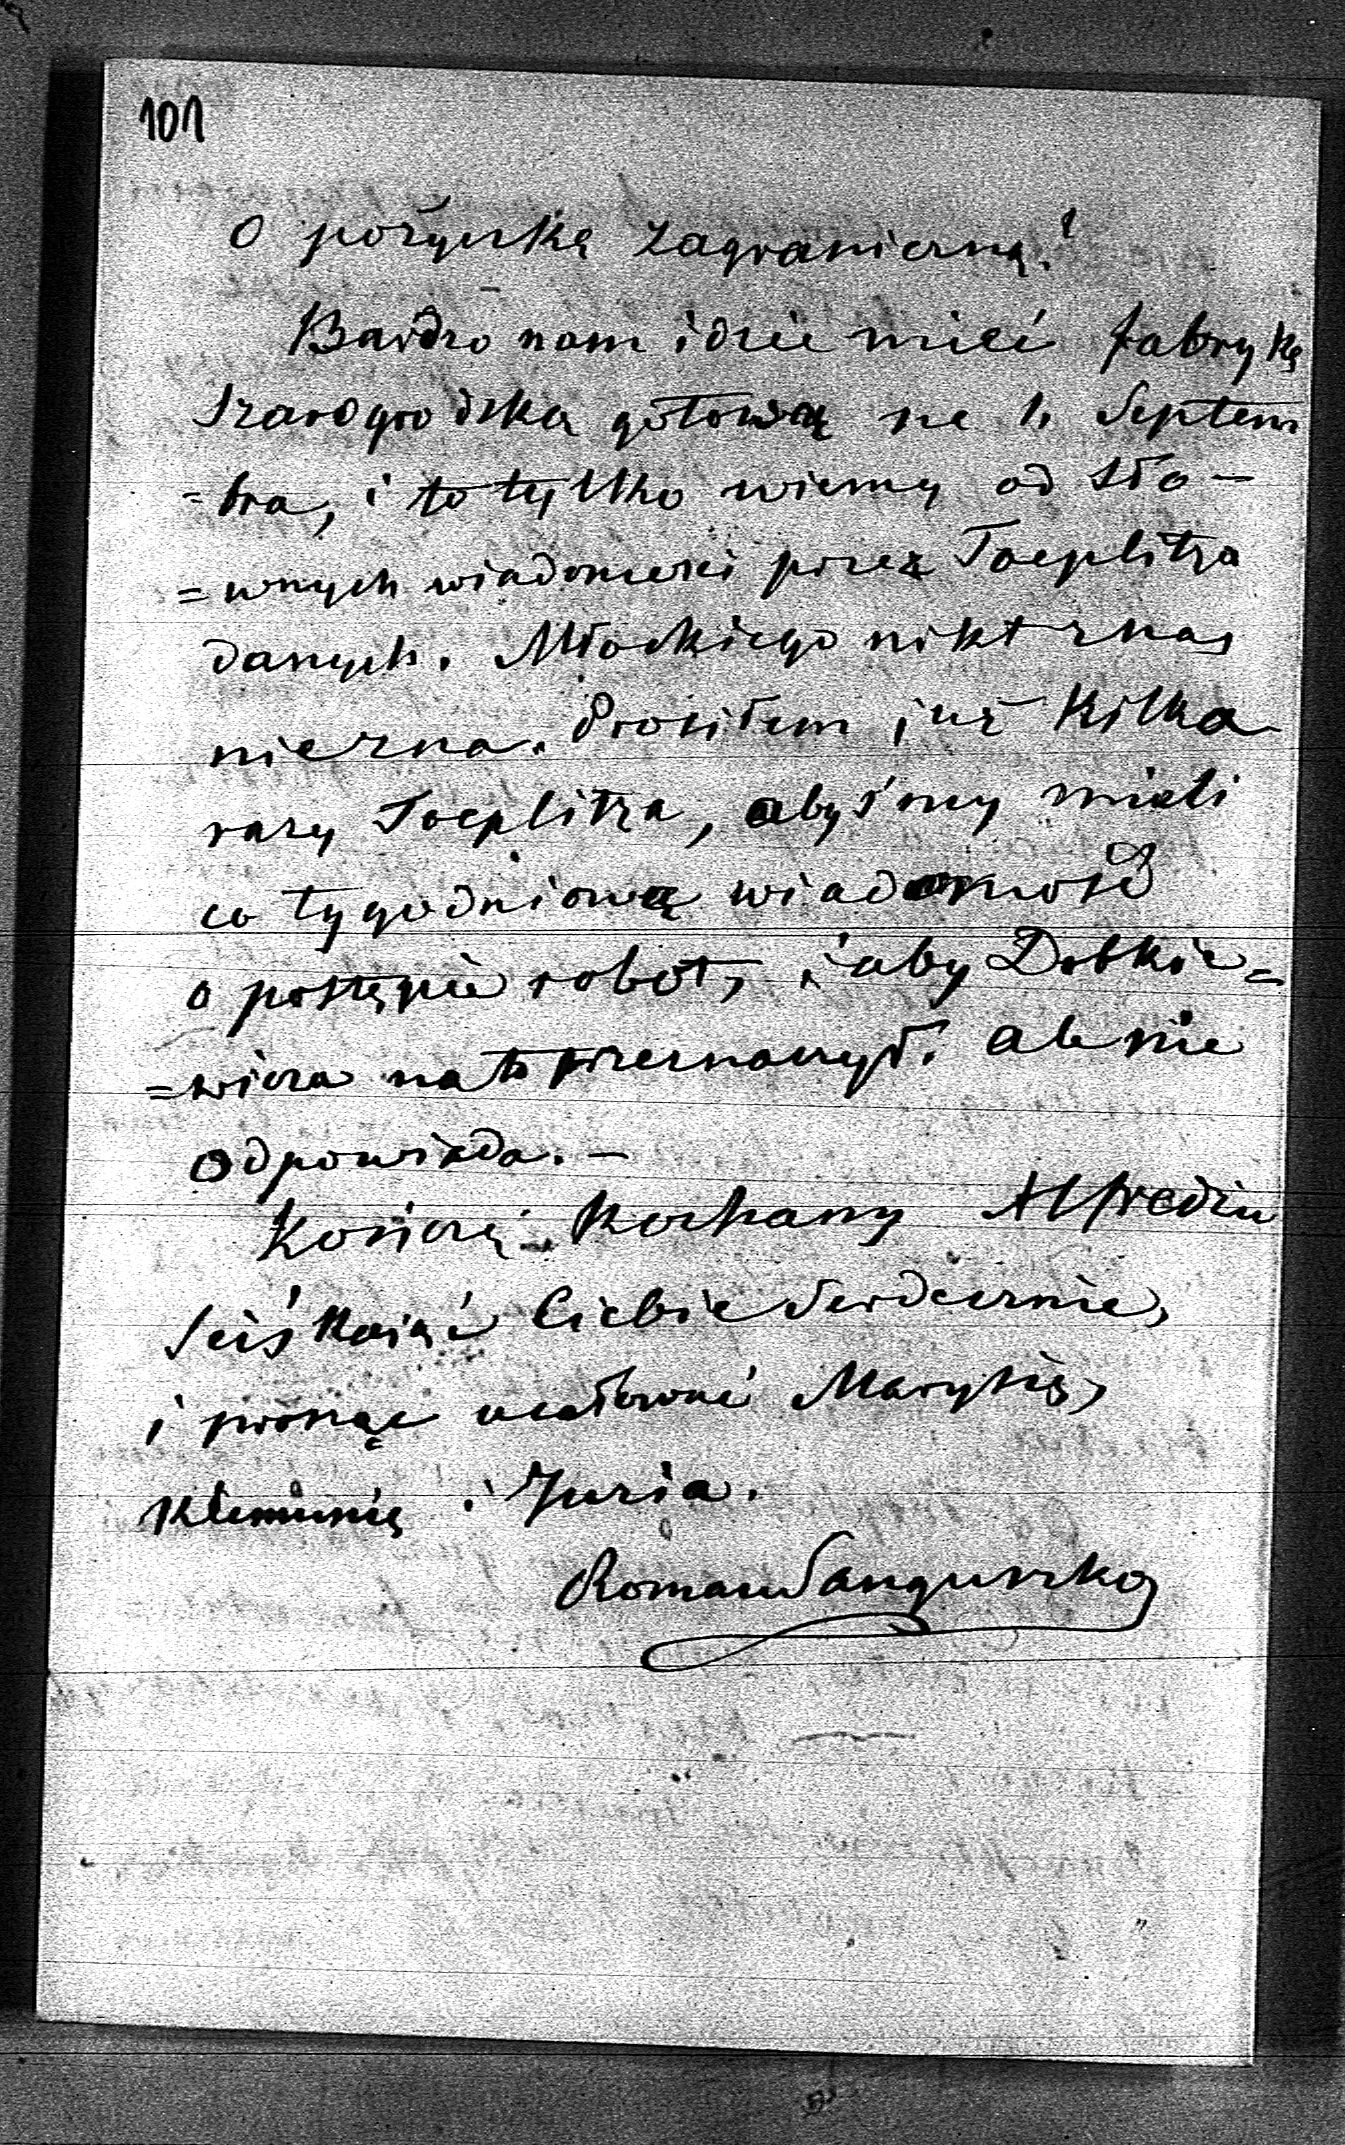 101
o pożyczkę zagraniczną!
Bardzo nam idzie mieć fabrykę
Szarogrodzką gotową na 1. Septem
=bra, i to tylko wiemy od sło-
=wnych wiadomości przez Toeplitza
danych. Młockiego nikt z nas
nie zna. Prosiłem już kilka
razy Toeplitza, abyśmy mieli
co tygodniową wiadomość
o postępie robot, i aby Dobkie=
=wicza na to przeznaczył. ale nie
odpowiada.-
Kończę kochany Alfredziu
ściskając Ciebie serdecznie,
i prosząc ucałować Marysię,
Klemunię i Juzia.
Roman Sanguszko